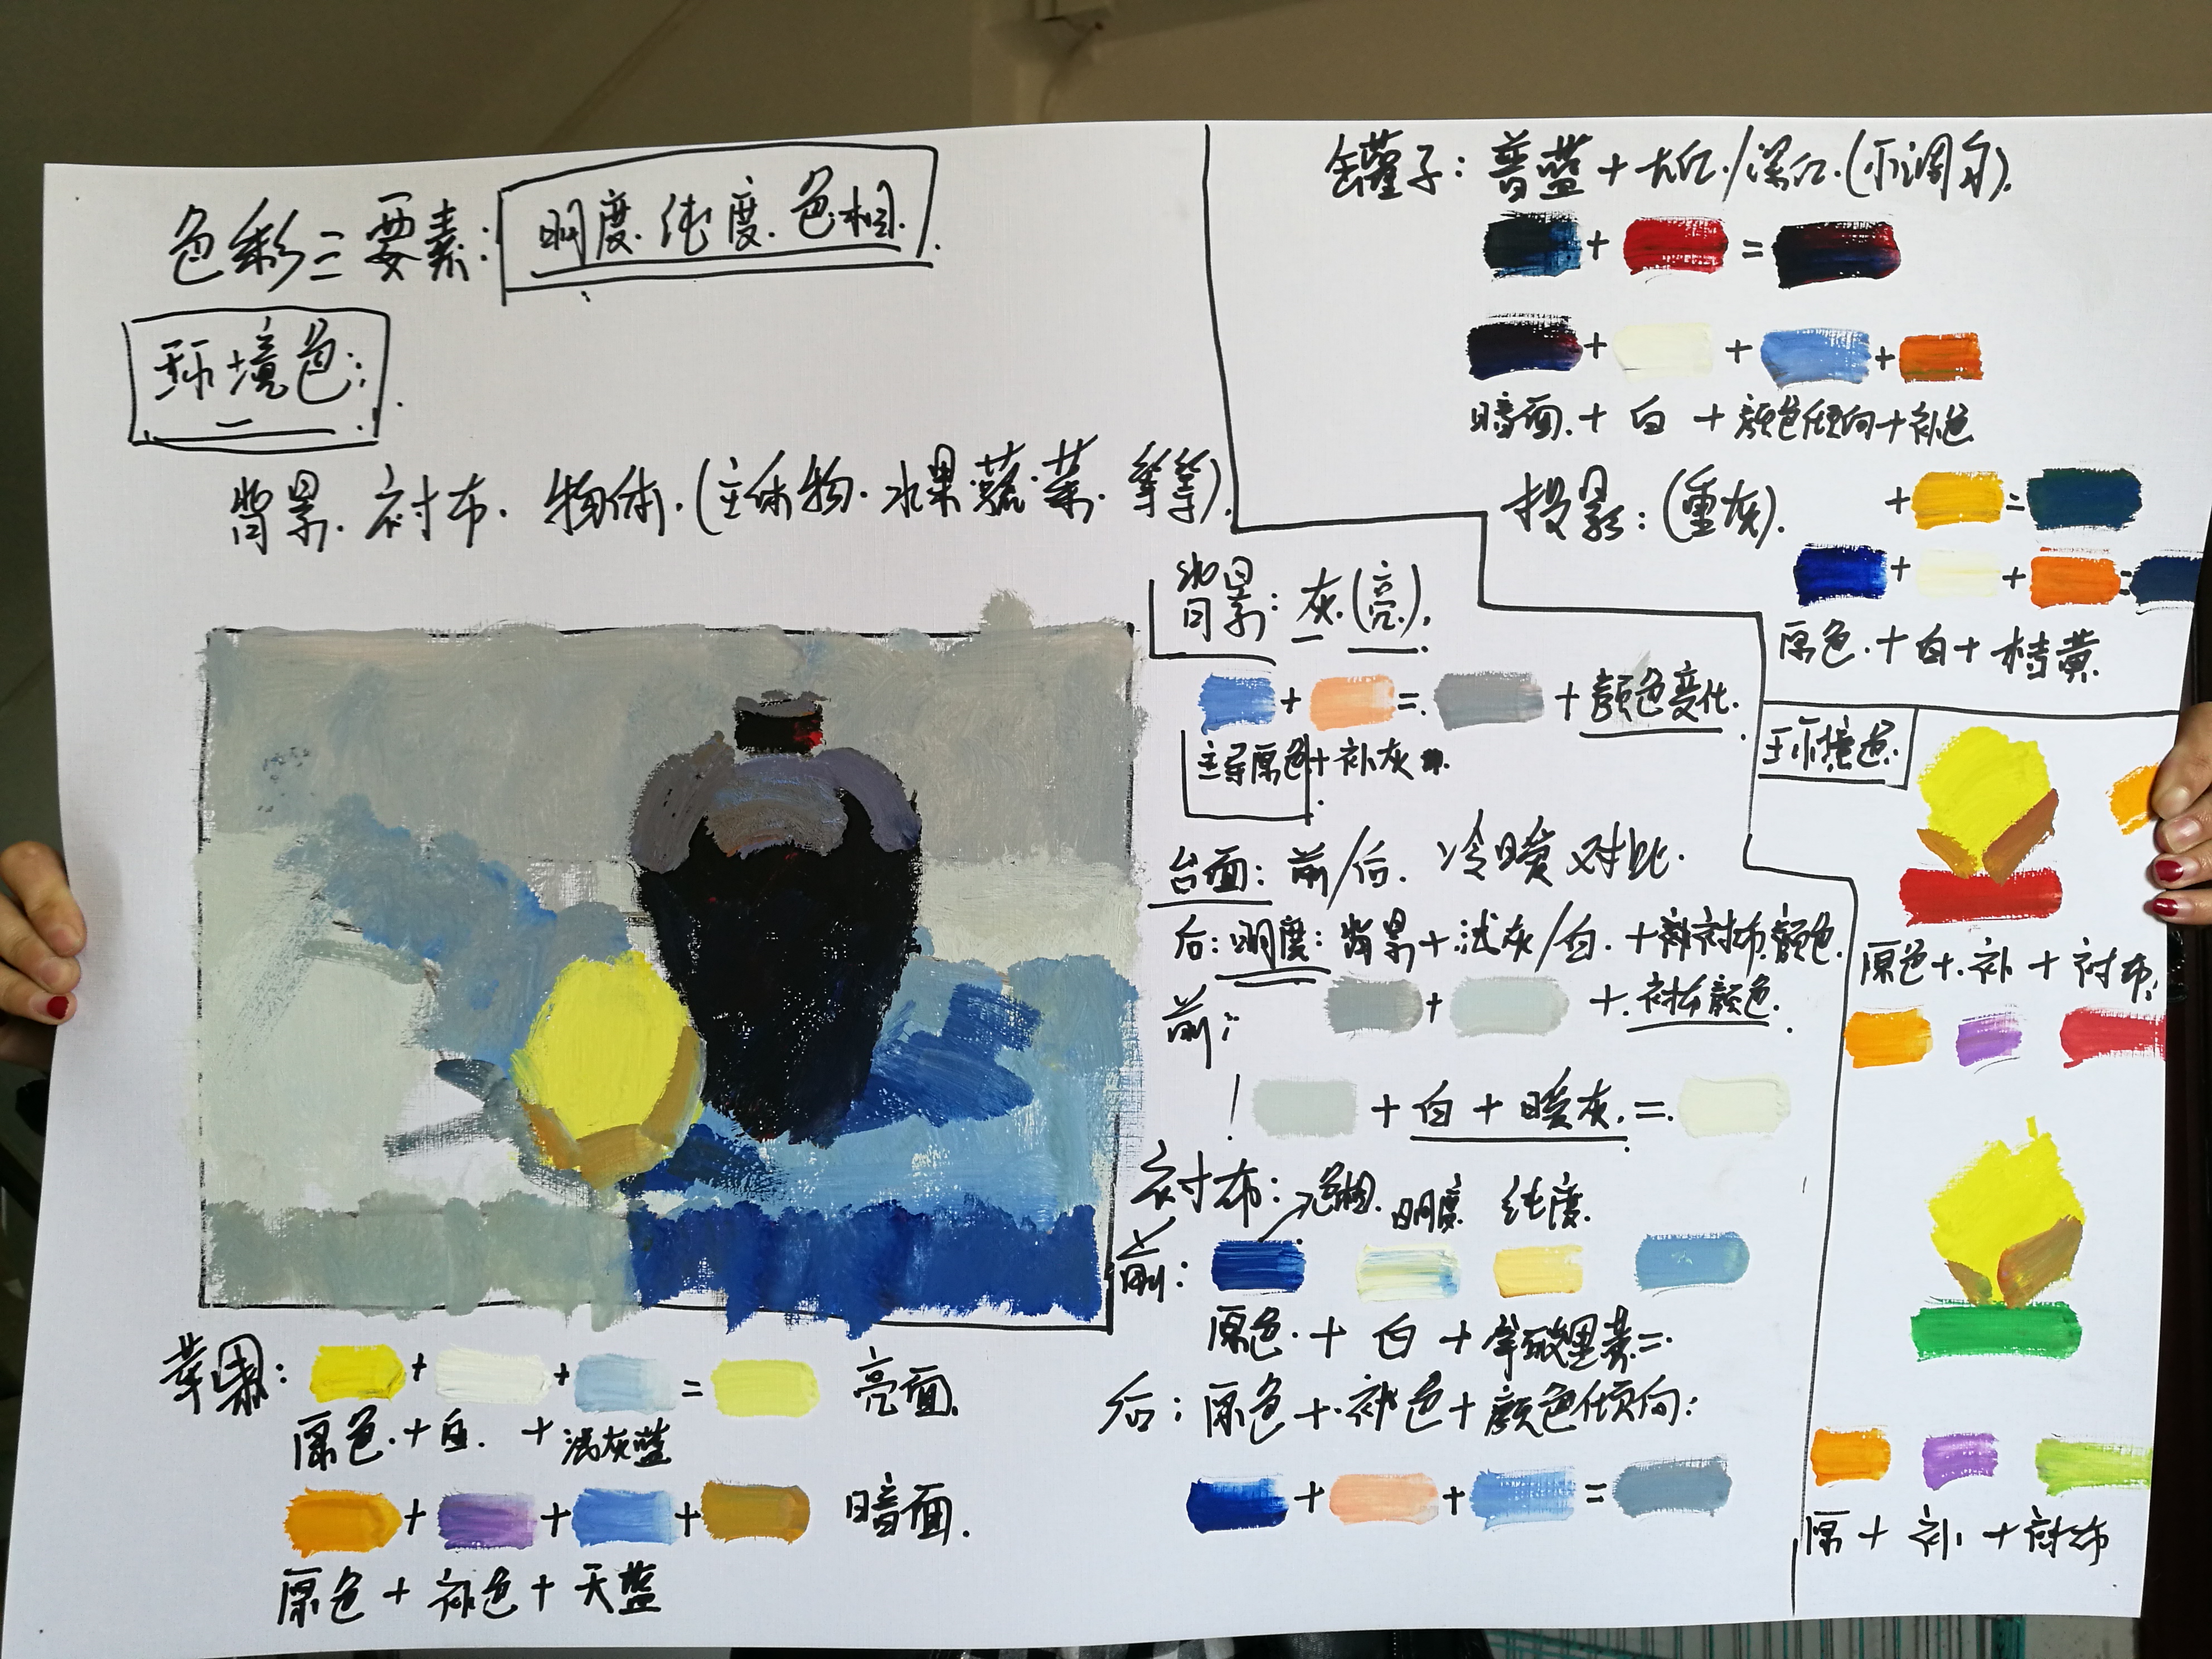 色彩三要素: 明度.纯度.色相.
环境色:
背景.衬布.物体.(主体物.水果.蔬.菜.等等).
罐子: 普蓝+大红./深红.(不调白).
+ =
+ + +
暗面.+白+颜色倾向+补色
投影:(重灰). + =
+ + =
原色.+白+桔黄.
背景: 灰.(亮).
+ = +颜色变化.
主导原色+补灰
台面: 前/后. 冷暖对比.
后: 明度: 背景+浅灰/白.+衬布颜色.
前: + +衬布颜色.
+白+暖灰.=
衬布: 色相. 明度 纯度.
前:
原色.+白+
后: 原色+补色+颜色倾向:
+ + =
环境色.
原色+补+衬布.
原+补+衬布
苹果: + + = 亮面.
原色.+白.+浅灰蓝
+ + + 暗面.
原色+补色+天蓝